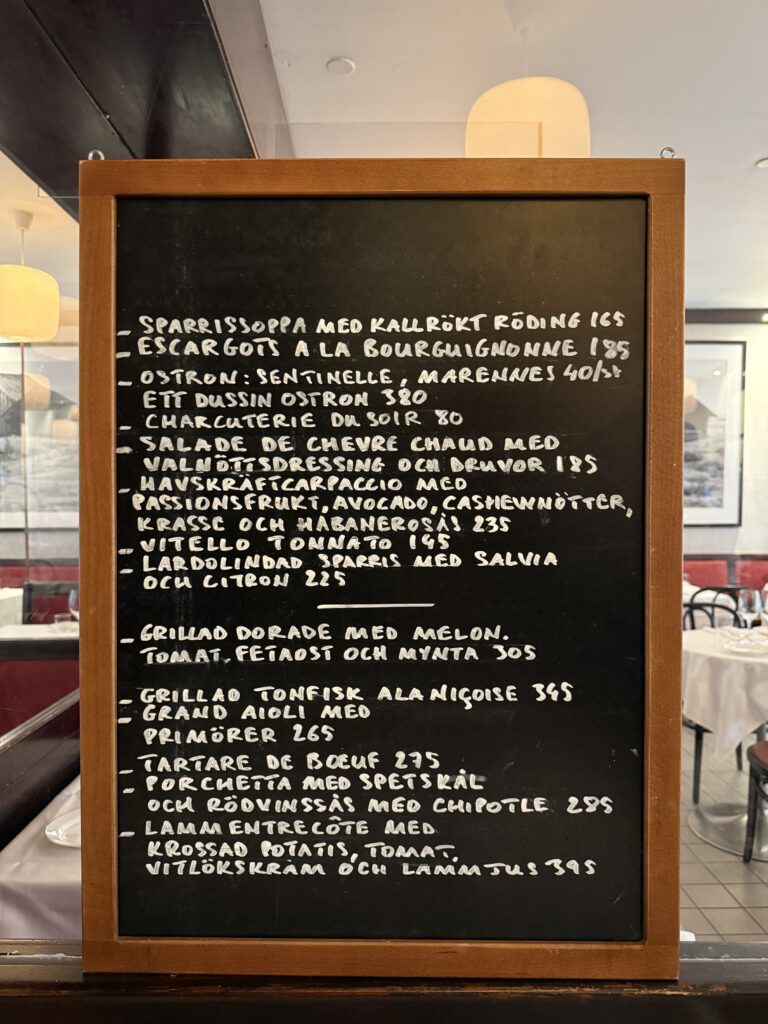 - SPARRISSOPPA MED KALLRÖKT RÖDING 165
- ESCARGOTS A LA BOURGUIGNONNE 185
- OSTRON: SENTINELLE, MARENNES 40/st
ETT DUSSIN OSTRON 380
- CHARCUTERIE DU SOIR 80
- SALADE DE CHEVRE CHAUD MED
VALNÖTTSDRESSING OCH DRUVOR 185
- HAVSKRÄFTCARPACCIO MED
PASSIONSFRUKT, AVOCADO, CASHEWNÖTTER,
KRASSE OCH HABANEROSÅS 235
- VITELLO TONNATO 145
- LARDOLINDAD SPARRIS MED SALVIA
OCH CITRON 225
- GRILLAD DORADE MED MELON.
TOMAT, FETAOST OCH MYNTA 305
- GRILLAD TONFISK ALA NIÇOISE 345
- GRAND AIOLI MED
PRIMÖRER 265
- TARTARE DE BŒUF 275
- PORCHETTA MED SPETSKÅL
OCH RÖDVINSSÅS MED CHIPOTLE 285
- LAMM ENTRECÔTE MED
KROSSAD POTATIS, TOMAT,
VITLÖKSKRÄM OCH LAMMJUS 395